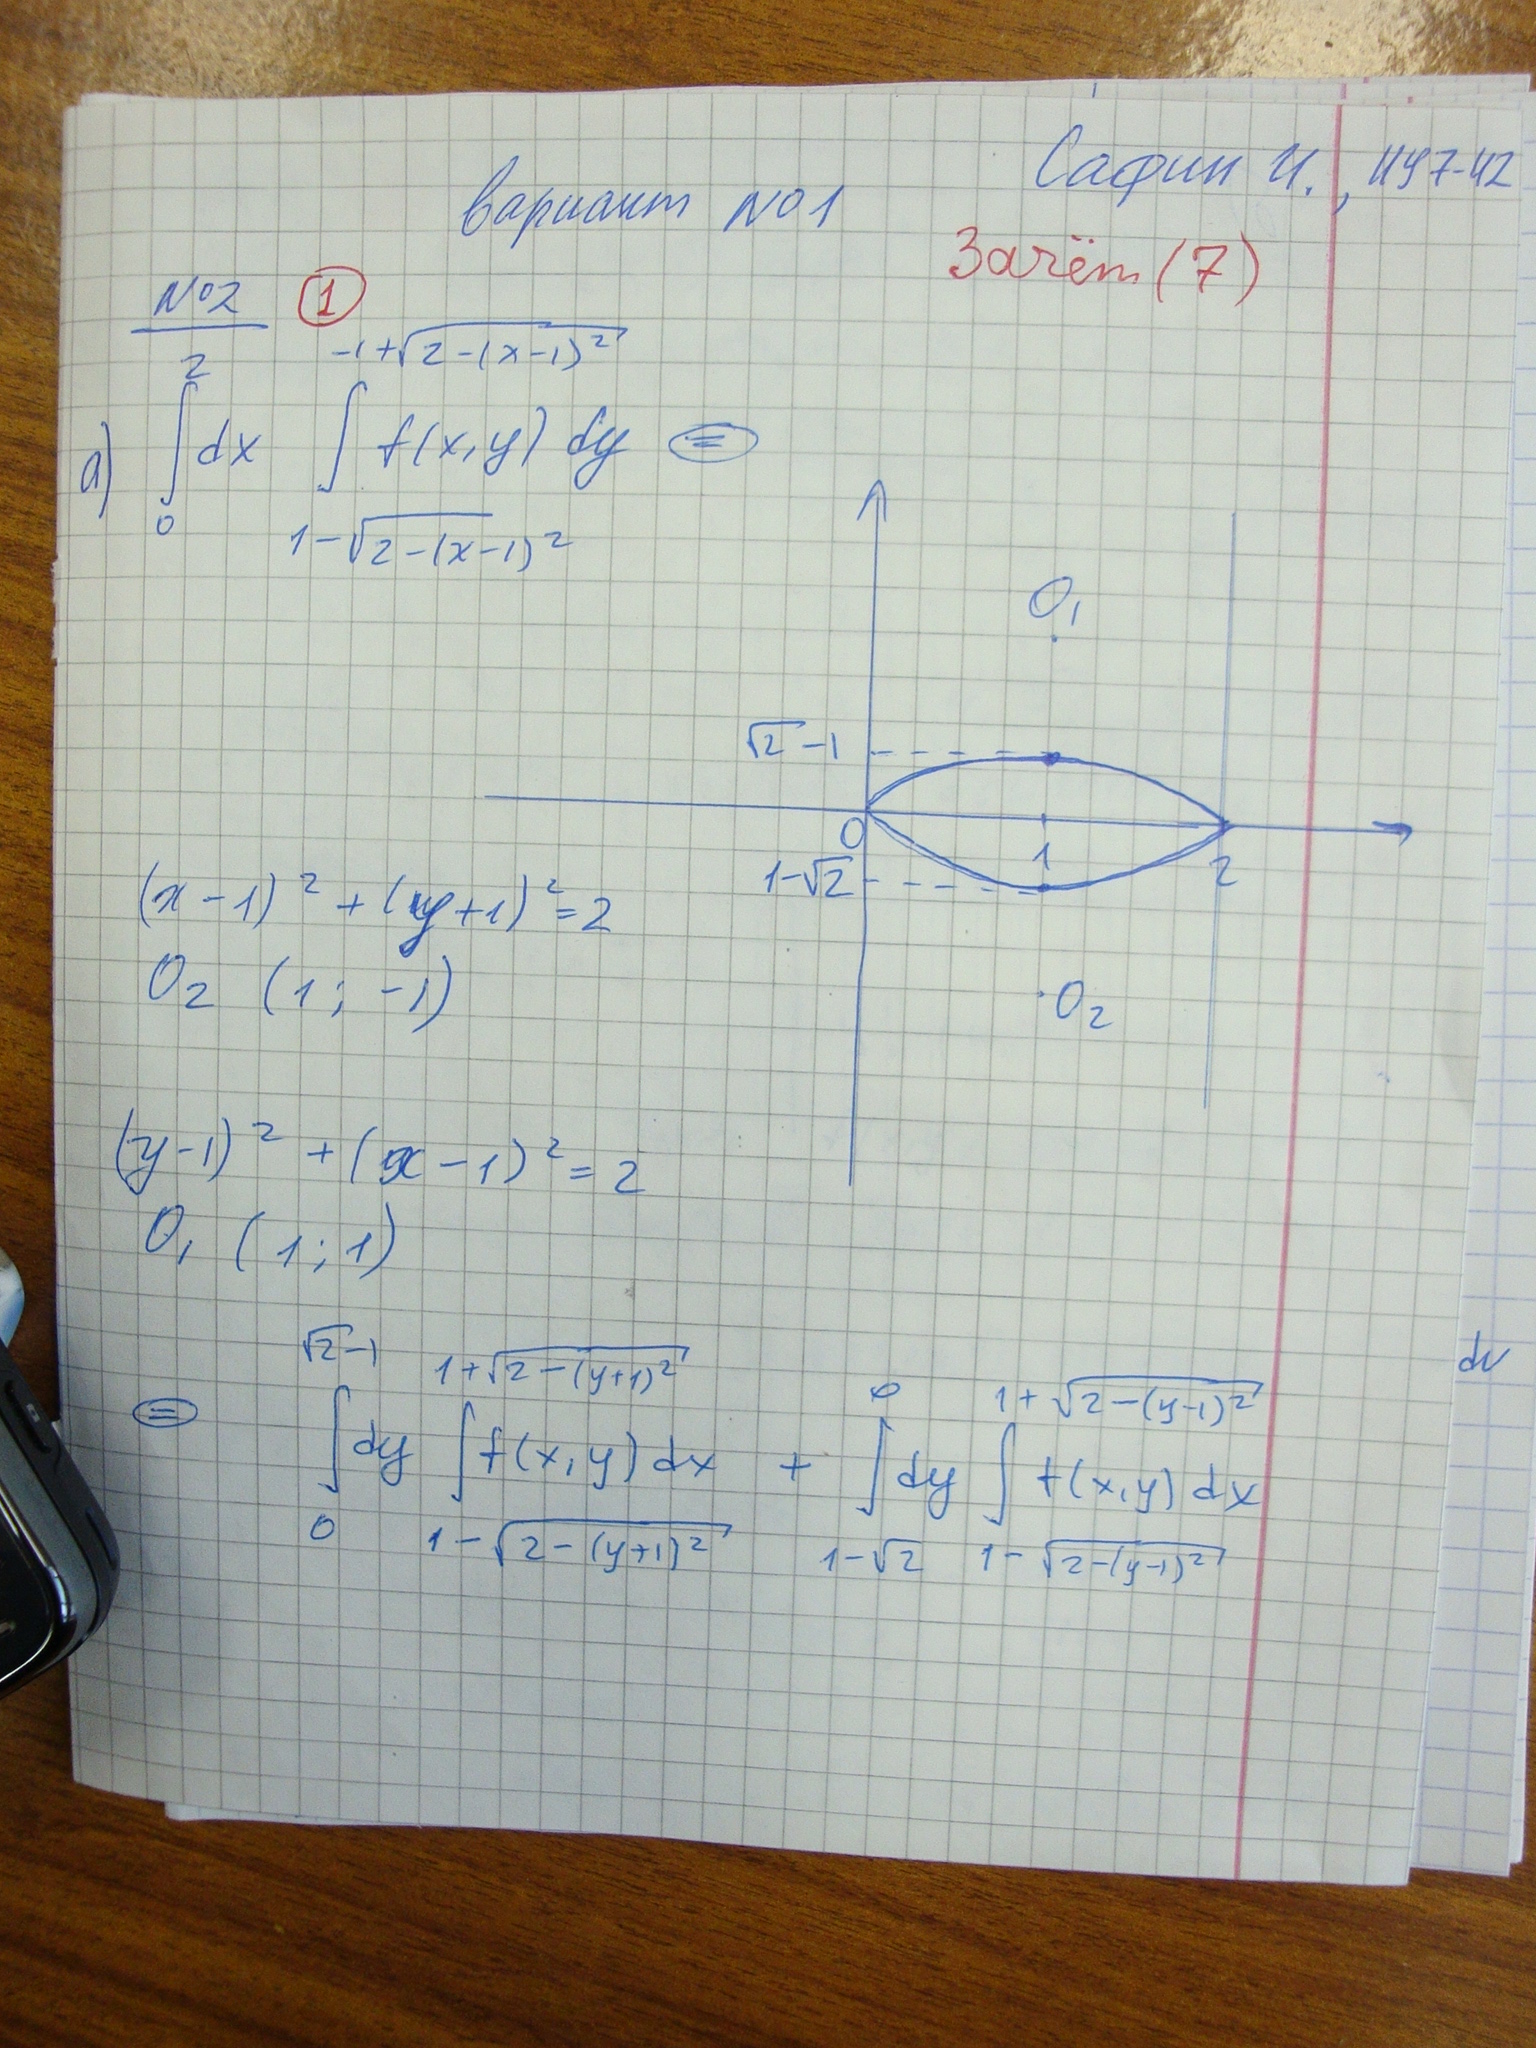 Сафин И., ИУ7-42
вариант №1
Зачёт (7)
№2 ①
а) ∫₀² dx ∫_{1-√(2-(x-1)²)}^{-1+√(2-(x-1)²)} f(x,y) dy ⊜
O₁
√2-1
0 1 2
1-√2
O₂
(x-1)² + (y+1)² = 2
O₂ (1; -1)
(y-1)² + (x-1)² = 2
O₁ (1; 1)
⊜ ∫₀^{√2-1} dy ∫_{1-√(2-(y+1)²)}^{1+√(2-(y+1)²)} f(x,y) dx + ∫_{1-√2}^{0} dy ∫_{1-√(2-(y-1)²)}^{1+√(2-(y-1)²)} f(x,y) dx